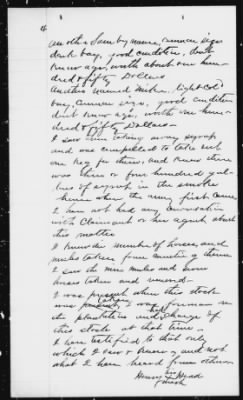 another Sumby mare, common size
dark bay, good condition, dont
know age, worth about one hun-
dred & fifty Dollars
Another named Mike, light-col'
bay, common size, good condition
dont know age, worth one hun-
dred & fifty Dollars.
I saw men taking away syrup
and was compelled to take out
one keg for them, and knew there
was three or four hundred gal-
lons of syrup in the smoke
house when the army first came
I have not had any conversation
with Claimant or her agents about
this matter
I know the number of horses and
mules taken from
I saw the mules and
horses taken and
I was present when this stock
was taken, I was foreman on
the plantation & had charge of
this stock at that time.
I have testified to that only
which I saw & know, and not
what I have heard from others.
his
Head
mark